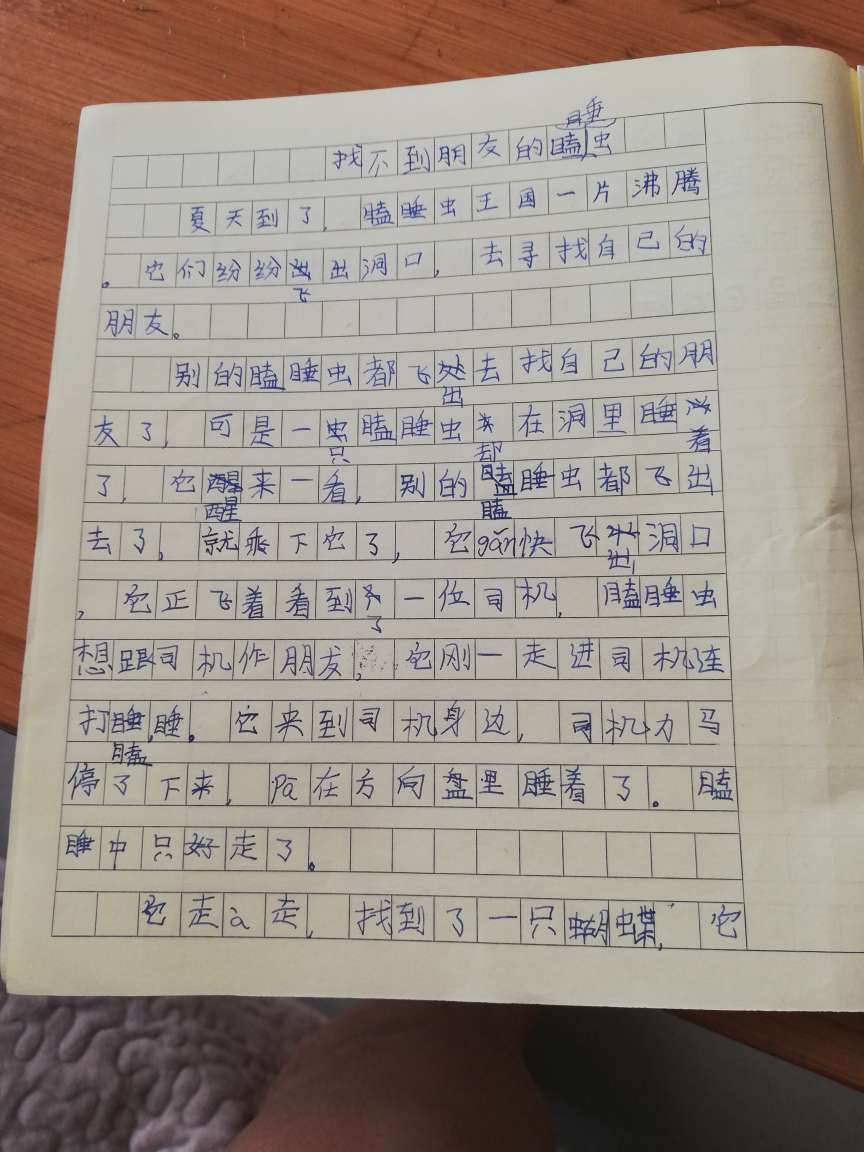 找不到朋友的瞌睡虫
夏天到了，瞌睡虫王国一片沸腾
。它们纷纷飞出洞口，去寻找自己的
朋友。
别的瞌睡虫都飞出去找自己的朋
友了，可是一只瞌睡虫却在洞里睡着
了，它醒来一看，别的瞌睡虫都飞出
去了，就乘下它了，它gǎn快飞出洞口
，它正飞着看到了一位司机，瞌睡虫
想跟司机作朋友，它刚一走进司机连
打瞌睡。它来到司机身边，司机力马
停了下来，pā在方向盘里睡着了。瞌
睡中只好走了。
它走à走，找到了一只蝴蝶，它